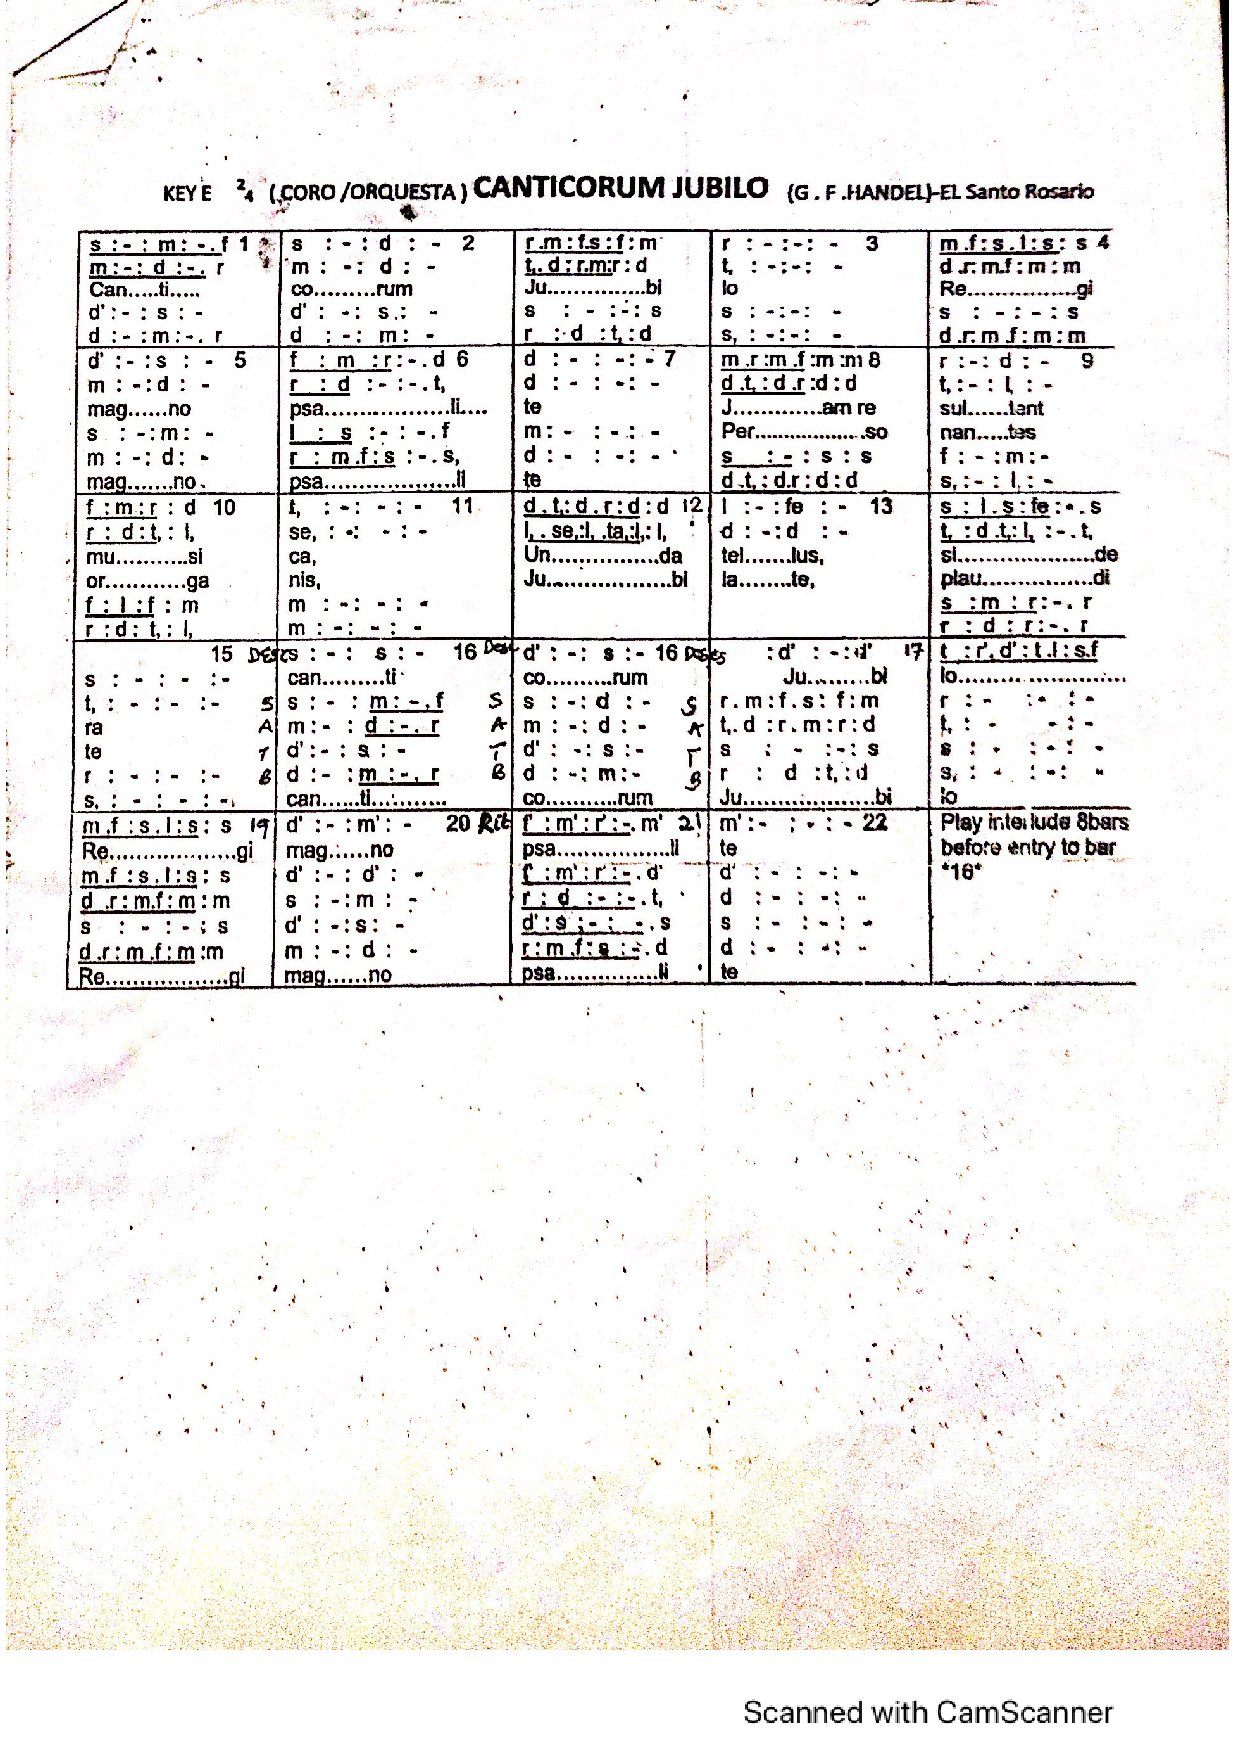 KEY E 2/4 (CORO /ORQUESTA ) CANTICORUM JUBILO (G . F .HANDEL)-EL Santo Rosario
s : - : m : - . f 1
m : - : d : - . r
Can.....ti.....
d' : - : s : -
d : - : m : - . r
s : - : d : - 2
m : - : d : -
co.........rum
d' : - : s : -
d : - : m : -
r .m : f.s : f : m
t,. d : r.m:r : d
Ju...............bi
s : - : - : s
r : d : t, : d
r : - : - : - 3
t, : - : - : -
lo
s : - : - : -
s, : - : - : -
m .f : s .l : s : s 4
d .r: m.f : m : m
Re.................gi
s : - : - : s
d .r: m .f : m : m
d' : - : s : - 5
m : - : d : -
mag......no
s : - : m : -
m : - : d : -
mag.......no.
f : m : r : - . d 6
r : d : - : - . t,
psa..................li....
l : s : - : - . f
r : m .f : s : - . s,
psa...................li
d : - : - : - 7
d : - : - : -
te
m : - : - : -
d : - : - : -
te
m .r :m .f :m :m 8
d .t, : d .r :d : d
J.............am re
Per...................so
s : - : s : s
d .t, : d.r : d : d
r : - : d : - 9
t, : - : l, : -
sul......tant
nan.....tes
f : - : m : -
s, : - : l, : -
f : m : r : d 10
r : d : t, : l,
mu...........si
or............ga
f : l : f : m
r : d : t, : l,
t, : - : - : - 11
se, : - : - : -
ca,
nis,
m : - : - : -
m : - : - : -
d .t,: d .r : d : d 12
l, . se,:l, .ta,:l, : l,
Un.................da
Ju......................bl
l : - : fe : - 13
d : - : d : -
tel.......lus,
la........te,
s : l . s : fe : - . s
t, : d .t, : l, : - . t,
si.....................de
plau................di
s : m : r : - . r
r : d : r : - . r
15 Desc
s : - : - : -
t, : - : - : - S
ra A
te T
r : - : - : - B
s, : - : - : -
s : - : s : - 16 Des
can.........ti
s : - : m : - . f S
m : - : d : - . r A
d' : - : s : - T
d : - : m : - . r B
can......ti..........
d' : - : s : - 16 Desc
co..........rum
s : - : d : - S
m : - : d : - A
d' : - : s : - T
d : - : m : - B
co...........rum
: d' : - : d' 17
Ju.........bl
r . m : f . s : f : m
t,. d : r . m : r : d
s : - : - : s
r : d : t, : d
Ju.....................bi
t : r'. d' : t . l : s.f
lo...........................
r : - : - : -
t, : - : - : -
s : - : - : -
s, : - : - : -
lo
m .f : s . l : s : s 19
Re..................gi
m .f : s . l : s : s
d .r : m.f : m : m
s : - : - : s
d .r : m .f : m :m
Re..................gi
d' : - : m' : - 20 Rit
mag......no
d' : - : d' : -
s : - : m : -
d' : - : s : -
m : - : d : -
mag......no
f' : m' : r' : - . m' 21
psa................li
f' : m' : r' : - . d'
r : d : - : - . t,
d' : s : - : - . s
r : m .f : s : - . d
psa...............li
m' : - : - : - 22
te
d' : - : - : -
d : - : - : -
s : - : - : -
d : - : - : -
te
Play interlude 8bars
before entry to bar
*16*
Scanned with CamScanner